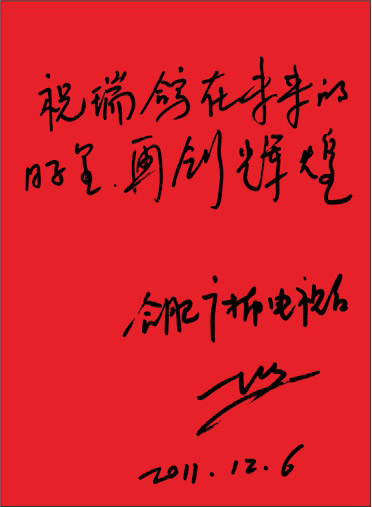 祝瑞鸽在未来的
日子里.再创辉煌
合肥广播电视台
2011.12.6